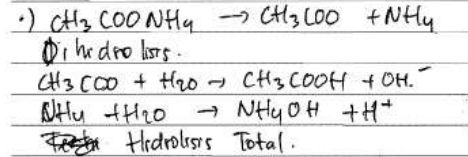 ·) CH3COONH4 → CH3COO + NH4
Dihidrolisis.
CH3COO + H2O → CH3COOH + OH.⁻
NH4 + H2O → NH4OH + H⁺
Hidrolisis Total.